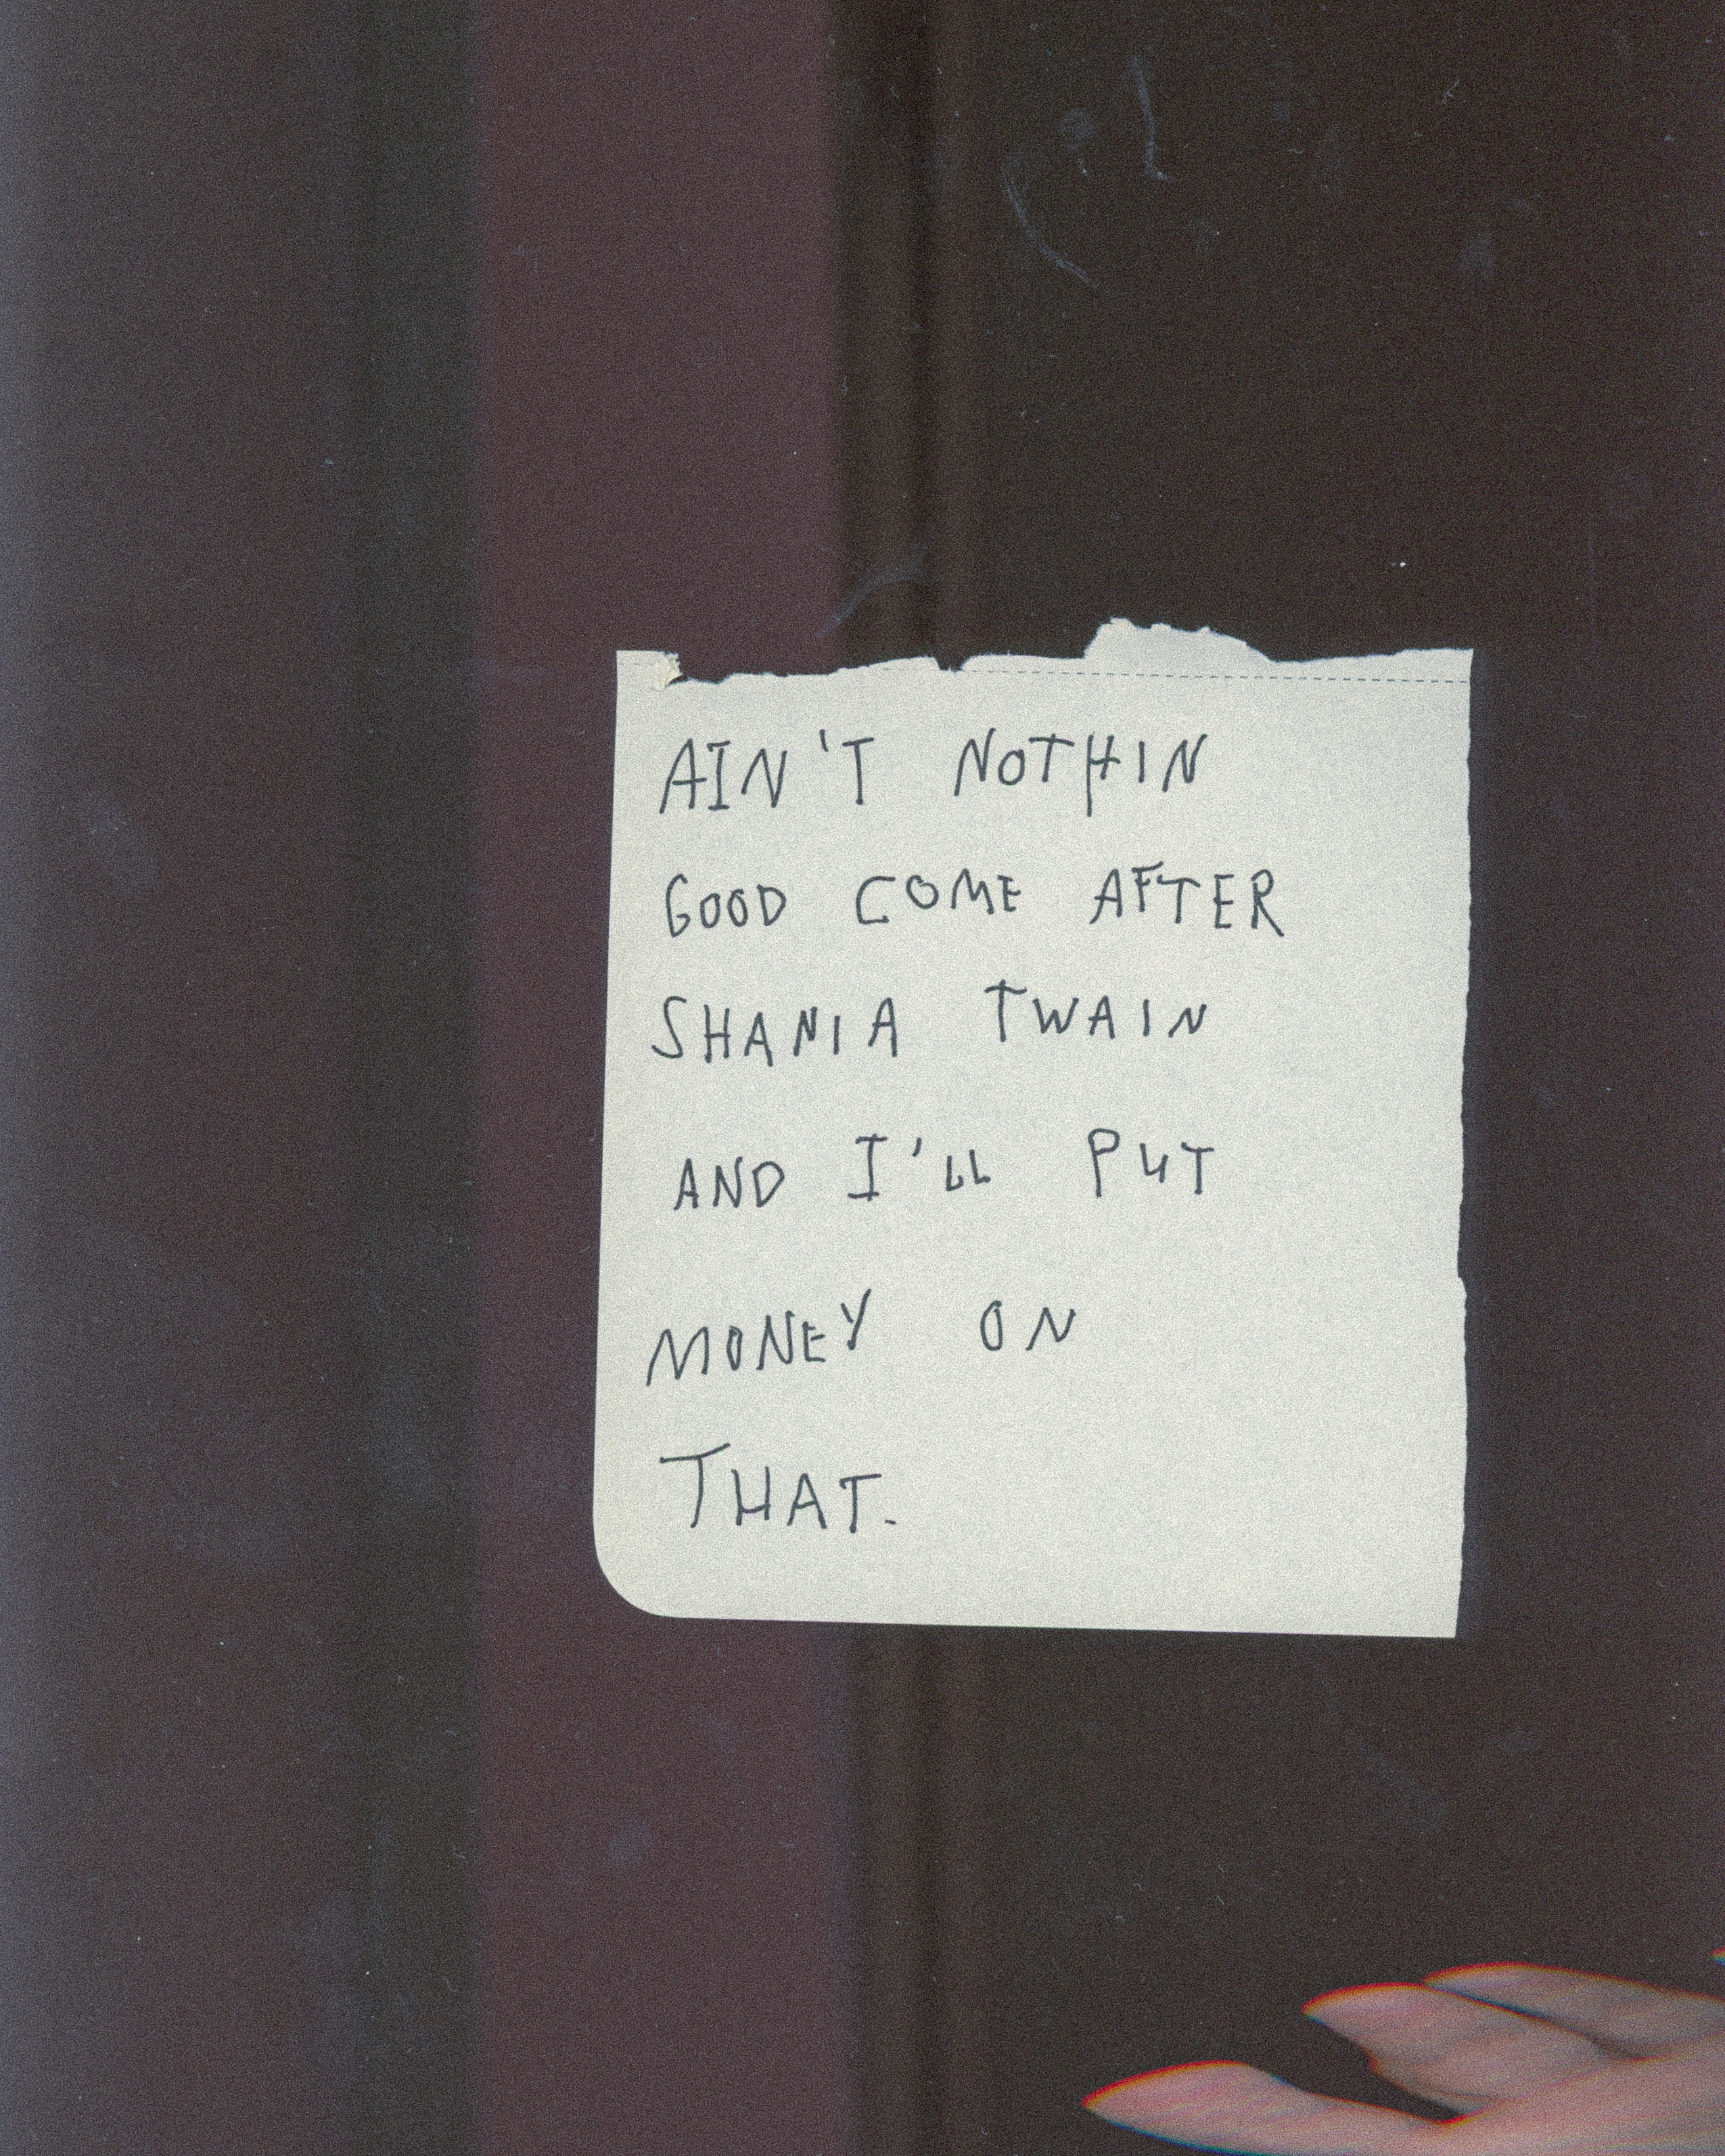 AIN'T NOTHIN
GOOD COME AFTER
SHANIA TWAIN
AND I'LL PUT
MONEY ON
THAT.